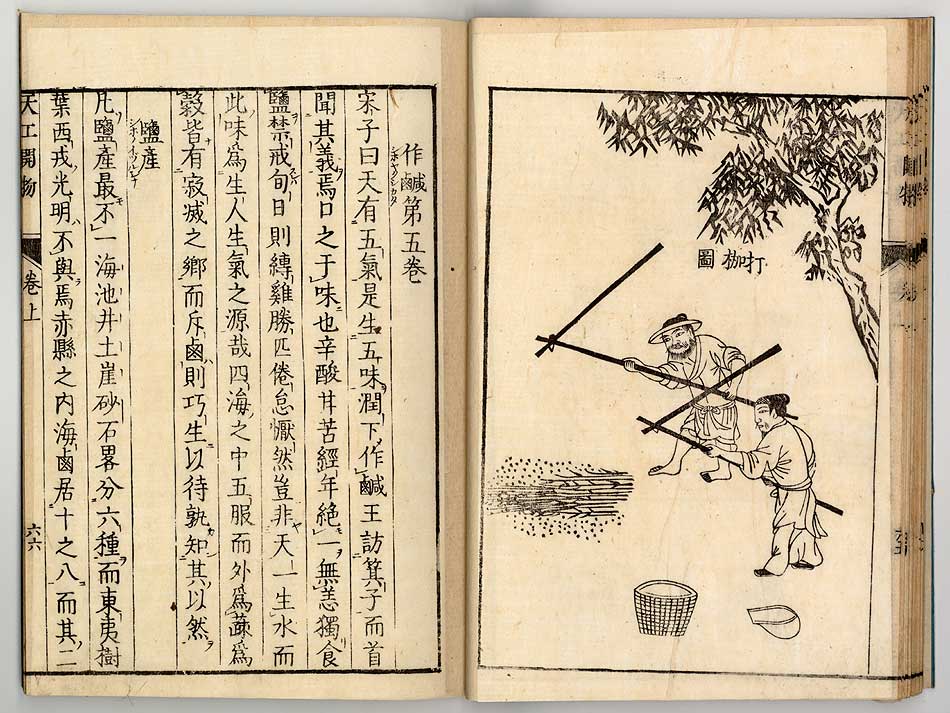 打枷圖
作鹹第五卷
宋子曰天有五氣是生五味潤下作鹹王訪箕子而首
聞其義焉口之于味也辛酸甘苦經年絶一無恙獨食
鹽禁戒旬日則縛雞勝匹倦怠懨然豈非天一生水而
此味爲生人生氣之源哉四海之中五服而外爲蔬爲
穀皆有寂滅之鄉而斥鹵則巧生以待孰知其以然
鹽產
凡鹽產最不一海池井土崖砂石畧分六種而東夷樹
葉西戎光明不與焉赤縣之内海鹵居十之八而其二
天工開物 卷上 六六